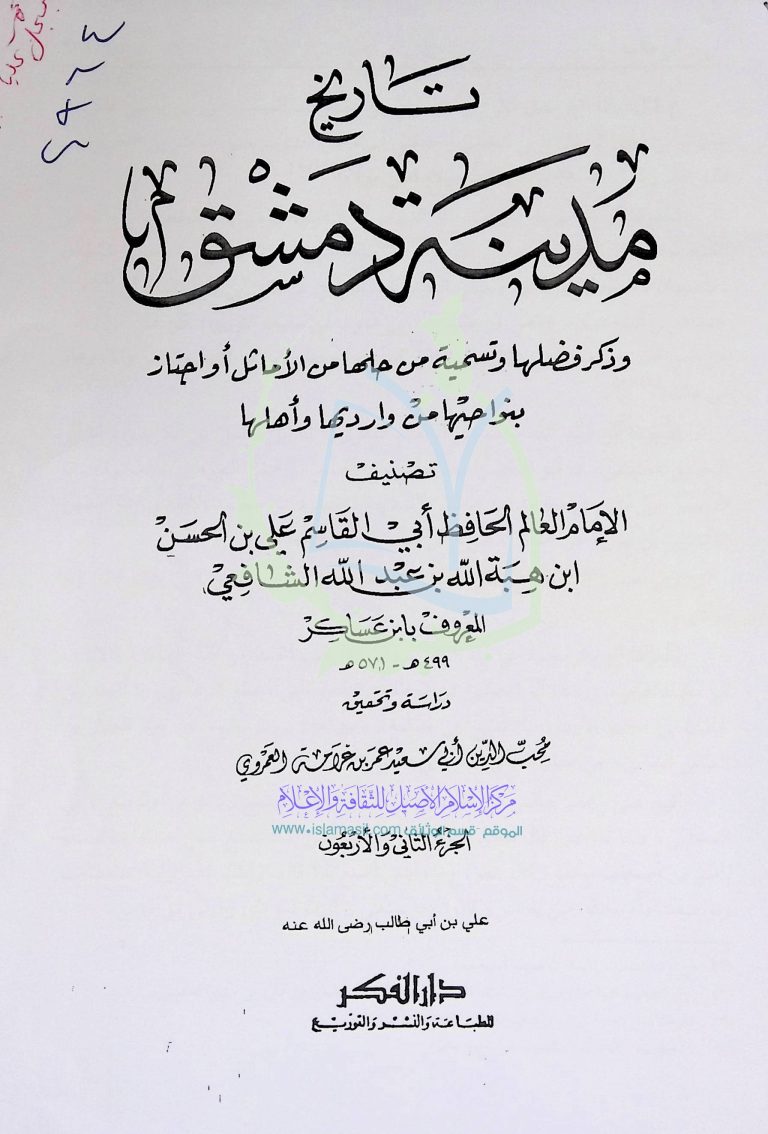 تاريخ
مدينة دمشق
وذكر فضلها وتسمية من حلها من الأماثل أو اجتاز
بنواحيها من وارديها وأهلها
تصنيف
الإمام العالم الحافظ أبي القاسم علي بن الحسن
ابن هبة الله بن عبد الله الشافعي
المعروف بابن عساكر
٤٩٩ هـ - ٥٧١ هـ
دراسة وتحقيق
محب الدين أبي سعيد عمر بن غرامة العمروي
مركز الإسلام الأصيل للثقافة والإعلام
الموقع - قسم الوثائق www.islamasil.com
الجزء الثاني والأربعون
علي بن أبي طالب رضى الله عنه
دار الفكر
للطباعة والنشر والتوزيع